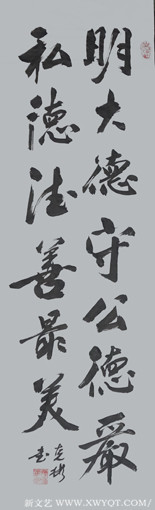 明大德守公德嚴
私德法善最美
新文艺(WWW.XWYQT.COM)